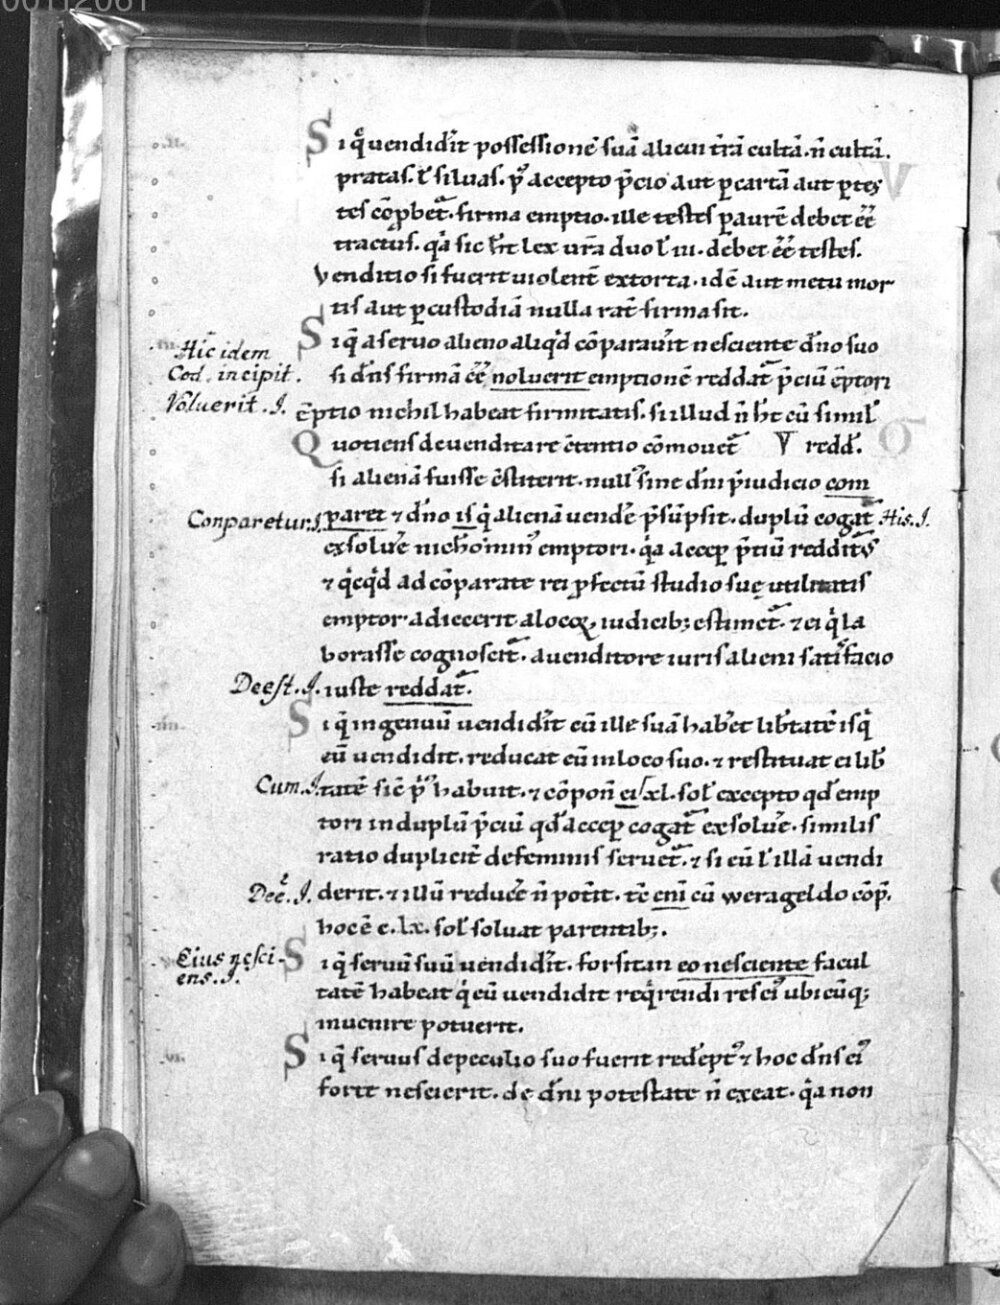 00112061
.ii. Si q̅s uendidit possessione̅ sua̅ alicui t̅ra̅ culta̅. n̅ culta̅.
pratas. ł siluas. p̾ accepto p̅cio aut p carta̅ aut p tes
tes co̅pbet᷑. firma emptio. ille testes p aure̅ debet ee̅
tractus. q̅a sic h̅nt lex ur̅a duo ł iii. debet ee̅ testes.
Venditio si fuerit uiolent̅ extorta. ide̅ aut metu mor
tis aut p custodia̅ nulla rat̅ firma sit.
Si q̅s a seruo alieno aliq̅d co̅parau̅it nesciente d̅no suo
Hic idem
Cod. incipit.
si d̅ns firma̅ ee̅ noluerit emptione̅ reddat᷑ p̅ciu̅ e̅ptori
Voluerit. I.
e̅ptio nichil habeat firmitatis. si illud n̅ h̅t cu̅ simil̅
Quotiens de uenditare c̅tentio co̅mouet᷑ V redd̅.
si aliena̅ fuisse c̅stiterit. null̾ sine d̅ni p̅iudicio com
Conparetur. I. paret ⁊ d̅no is q̅ aliena̅ uende̅ p̅su̅psit. duplu̅ cogat᷑ His. I.
exsolue̅ nich̅ omin̾ emptori. q̅a accep̅ p̅tiu̅ reddit̾
⁊ q̅cq̅d ad co̅parate rei pfectu̅ studio suę utilitatis
emptor adiecerit a locoꝝ iudicib; estimet᷑. ⁊ ei q̅ la
borasse cognoscit᷑. a uenditore iuris alieni satisfacio
Deest. I. iuste reddat᷑.
Si q̅s ingenuu̅ uendidit eu̅ ille sua̅ habet lib̅tate̅ is q̅
eu̅ uendidit. reducat eu̅ in loco suo. ⁊ restituat ei lib̅
Cum. I. tate̅ sic̅ p̾ habuit. ⁊ co̅pon̅ ei xl. sol̅ excepto qd̅ emp
tori in duplu̅ p̅ciu̅ qd̅ accep̅ cogat᷑ exsolue̅. similis
ratio duplicit̅ de feminis seruet᷑. ⁊ si eu̅ ł illa̅ uendi
Dee̅. I. derit. ⁊ illu̅ reduce̅ n̅ pot̅it. tc̅ eni̅ cu̅ werageldo co̅p̅.
hoc e̅ c. lx. sol̅ soluat parentib;.
Eius nęsci-
ens. I.
Si q̅s seruu̅ suu̅ uendidit. forsitan eo nesciente facul
tate̅ habeat q̅ eu̅ uendidit req̅rendi res ei̾ ubicu̅q;
inuenire potuerit.
.vi. Si q̅s seruus de peculio suo fuerit rede̅pt̾ ⁊ hoc d̅ns ei̾
forte nescierit. de d̅ni potestate n̅ exeat. q̅a non